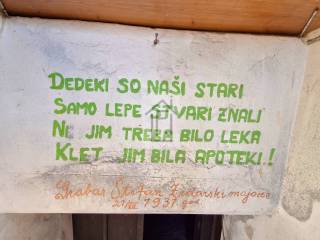 DEDEKI SO NAŠI STARI
SAMO LEPE STVARI ZNALI
NE JIM TREBA BILO LEKA
KLET JIM BILA APOTEKI!
Hrabar Štefan Zidarski majster
21/III 1931 god.